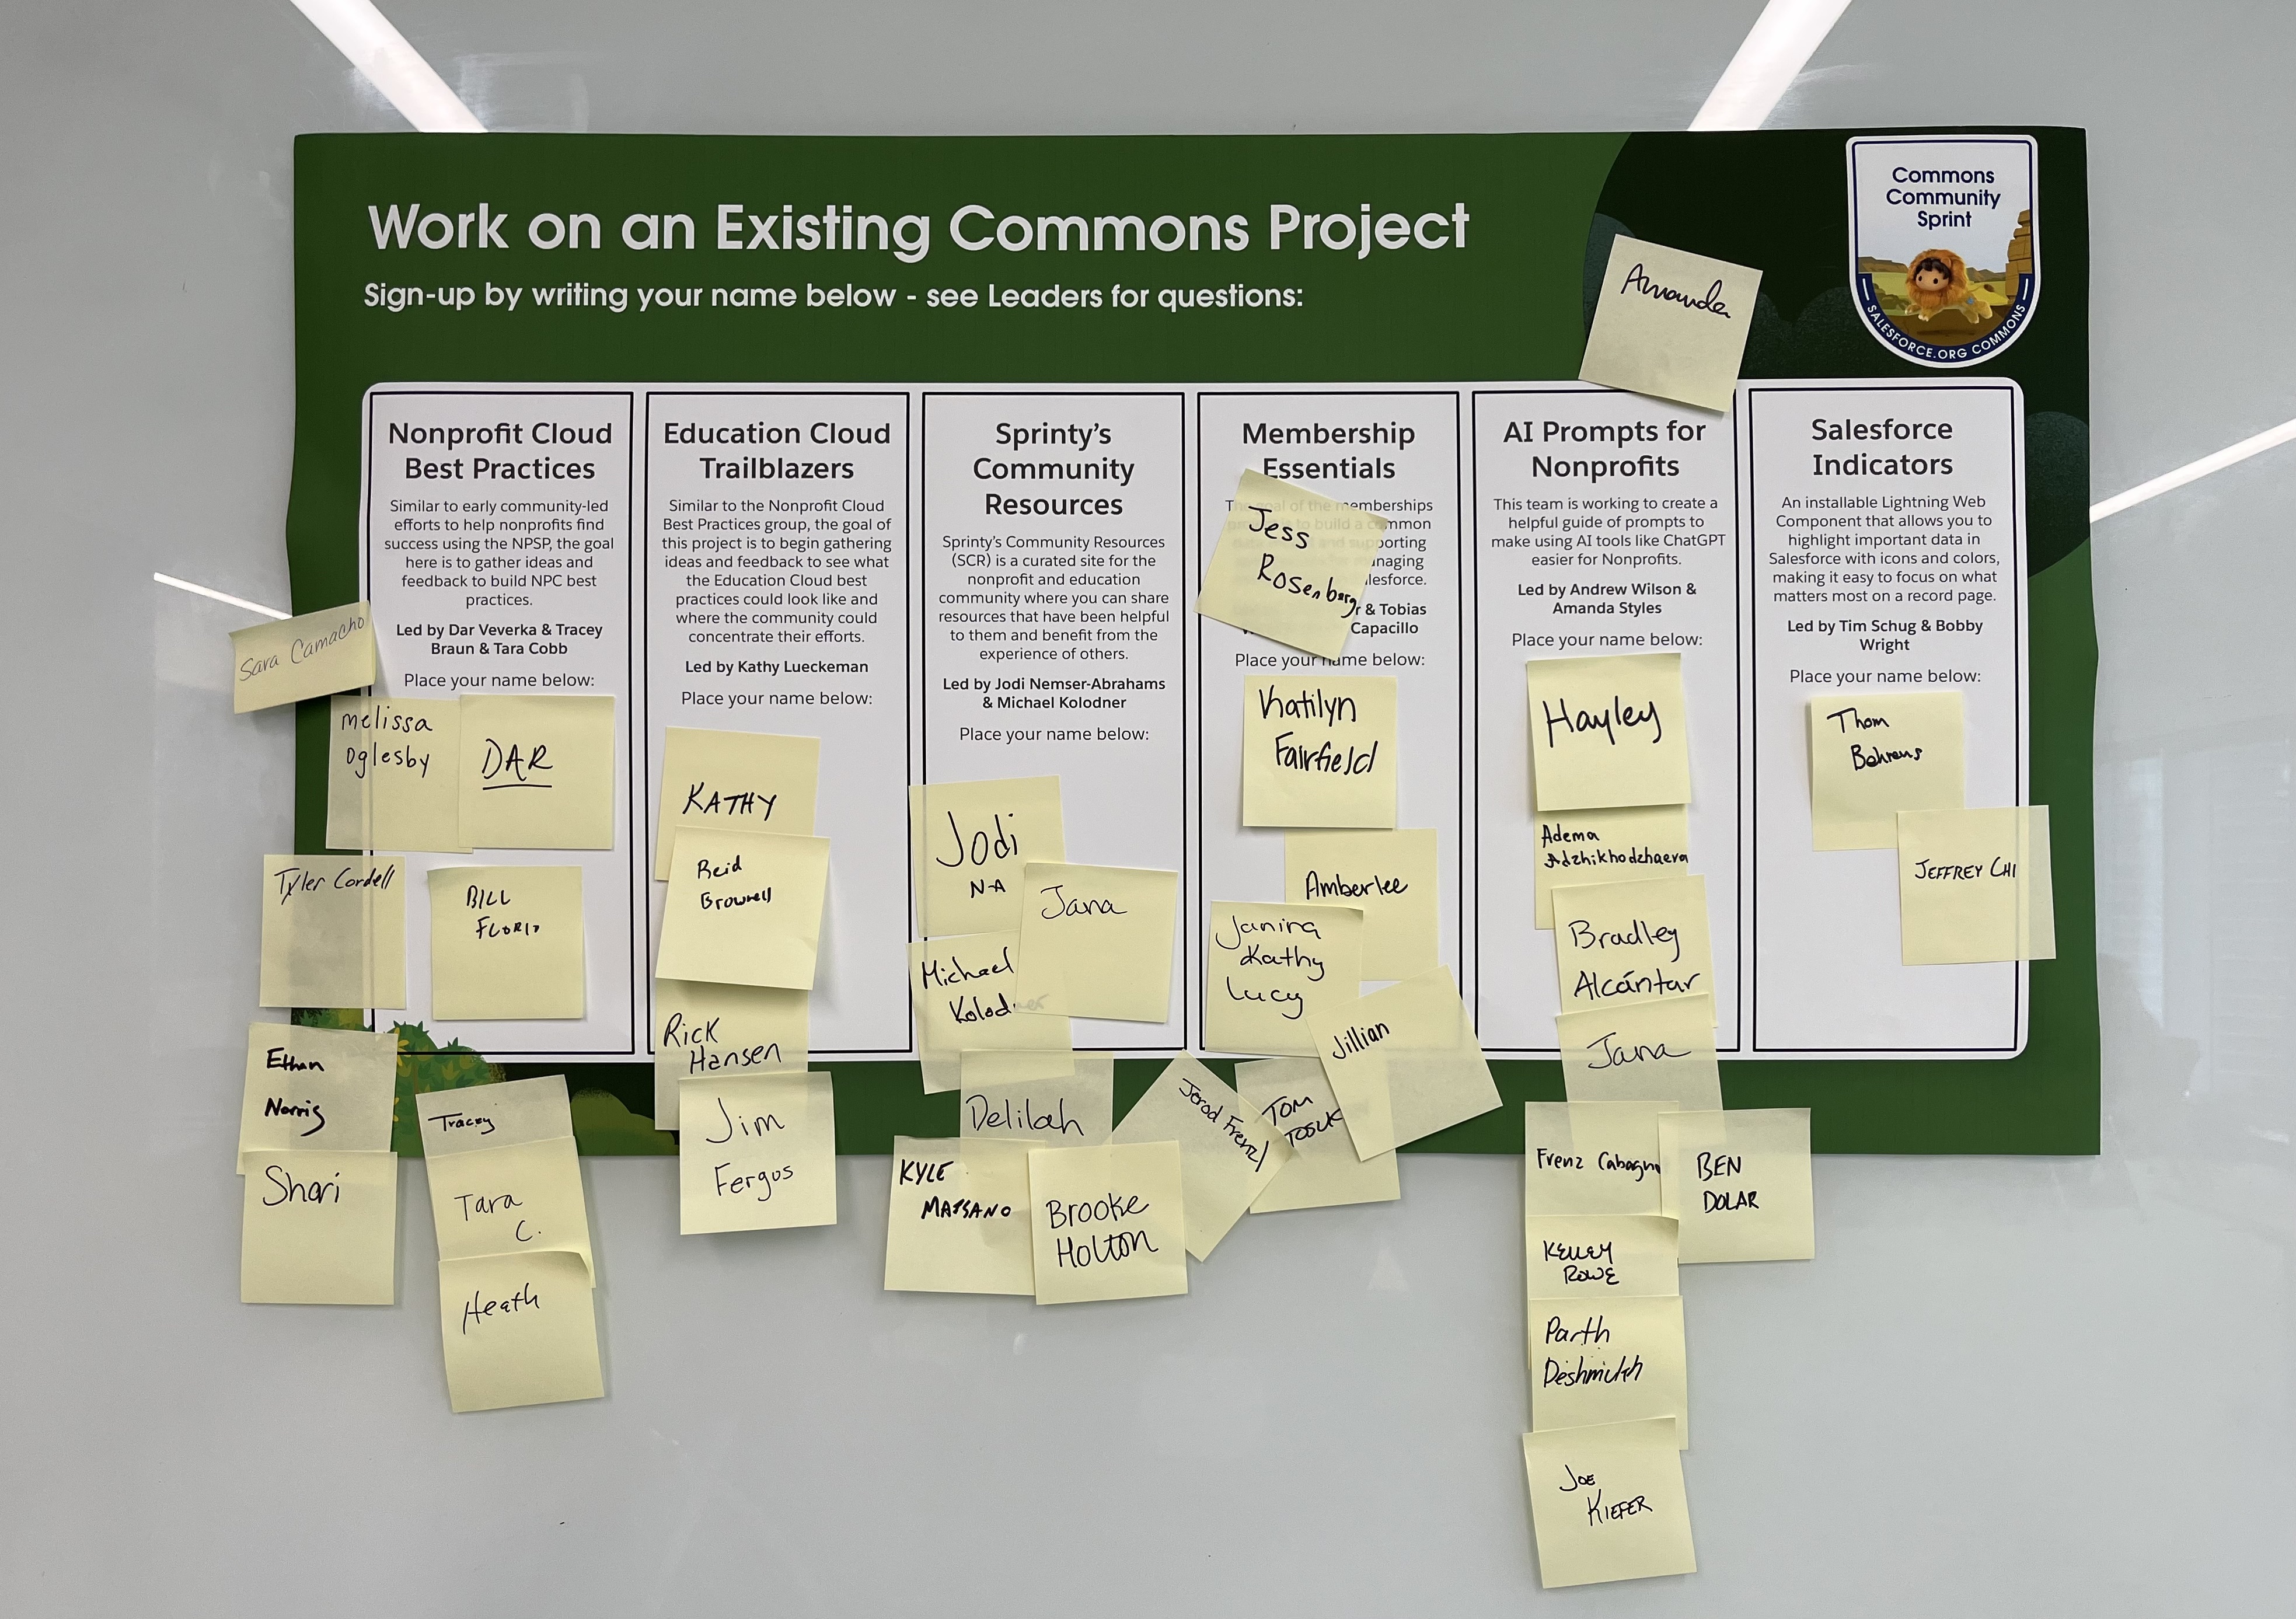 Work on an Existing Commons Project
Sign-up by writing your name below - see Leaders for questions:
Commons
Community
Sprint
SALESFORCE.ORG COMMONS
Amanda
Nonprofit Cloud
Best Practices
Similar to early community-led
efforts to help nonprofits find
success using the NPSP, the goal
here is to gather ideas and
feedback to build NPC best
practices.
Led by Dar Veverka & Tracey
Braun & Tara Cobb
Place your name below:
Sara Camacho
Melissa
Oglesby
DAR
Tyler Cordell
BILL
Ethan
Norris
Shari
Tracey
Tara
C.
Heath
Education Cloud
Trailblazers
Similar to the Nonprofit Cloud
Best Practices group, the goal of
this project is to begin gathering
ideas and feedback to see what
the Education Cloud best
practices could look like and
where the community could
concentrate their efforts.
Led by Kathy Lueckeman
Place your name below:
KATHY
Reid
Brownell
Rick
Hansen
Jim
Fergus
Sprinty's
Community
Resources
Sprinty's Community Resources
(SCR) is a curated site for the
nonprofit and education
community where you can share
resources that have been helpful
to them and benefit from the
experience of others.
Led by Jodi Nemser-Abrahams
& Michael Kolodner
Place your name below:
Jodi
N-A
Jana
Michael
Kolodner
Delilah
KYLE
Brooke
Holton
Membership
Essentials
The goal of the memberships
to build a common
and supporting
managing
Salesforce.
& Tobias
Capacillo
Place your name below:
Jess
Rosenberg
Katilyn
Fairfield
Amberlee
Janina
Kathy
Lucy
Jillian
Jerod Frenzl
TOM
AI Prompts for
Nonprofits
This team is working to create a
helpful guide of prompts to
make using AI tools like ChatGPT
easier for Nonprofits.
Led by Andrew Wilson &
Amanda Styles
Place your name below:
Hayley
Adema
Adzhikhodzhaeva
Bradley
Alcántar
Jana
Frenz
BEN
DOLAR
KELLEY
ROWE
Parth
Deshmukh
JOE
KIEFER
Salesforce
Indicators
An installable Lightning Web
Component that allows you to
highlight important data in
Salesforce with icons and colors,
making it easy to focus on what
matters most on a record page.
Led by Tim Schug & Bobby
Wright
Place your name below:
Thom
Behrens
JEFFREY CHI